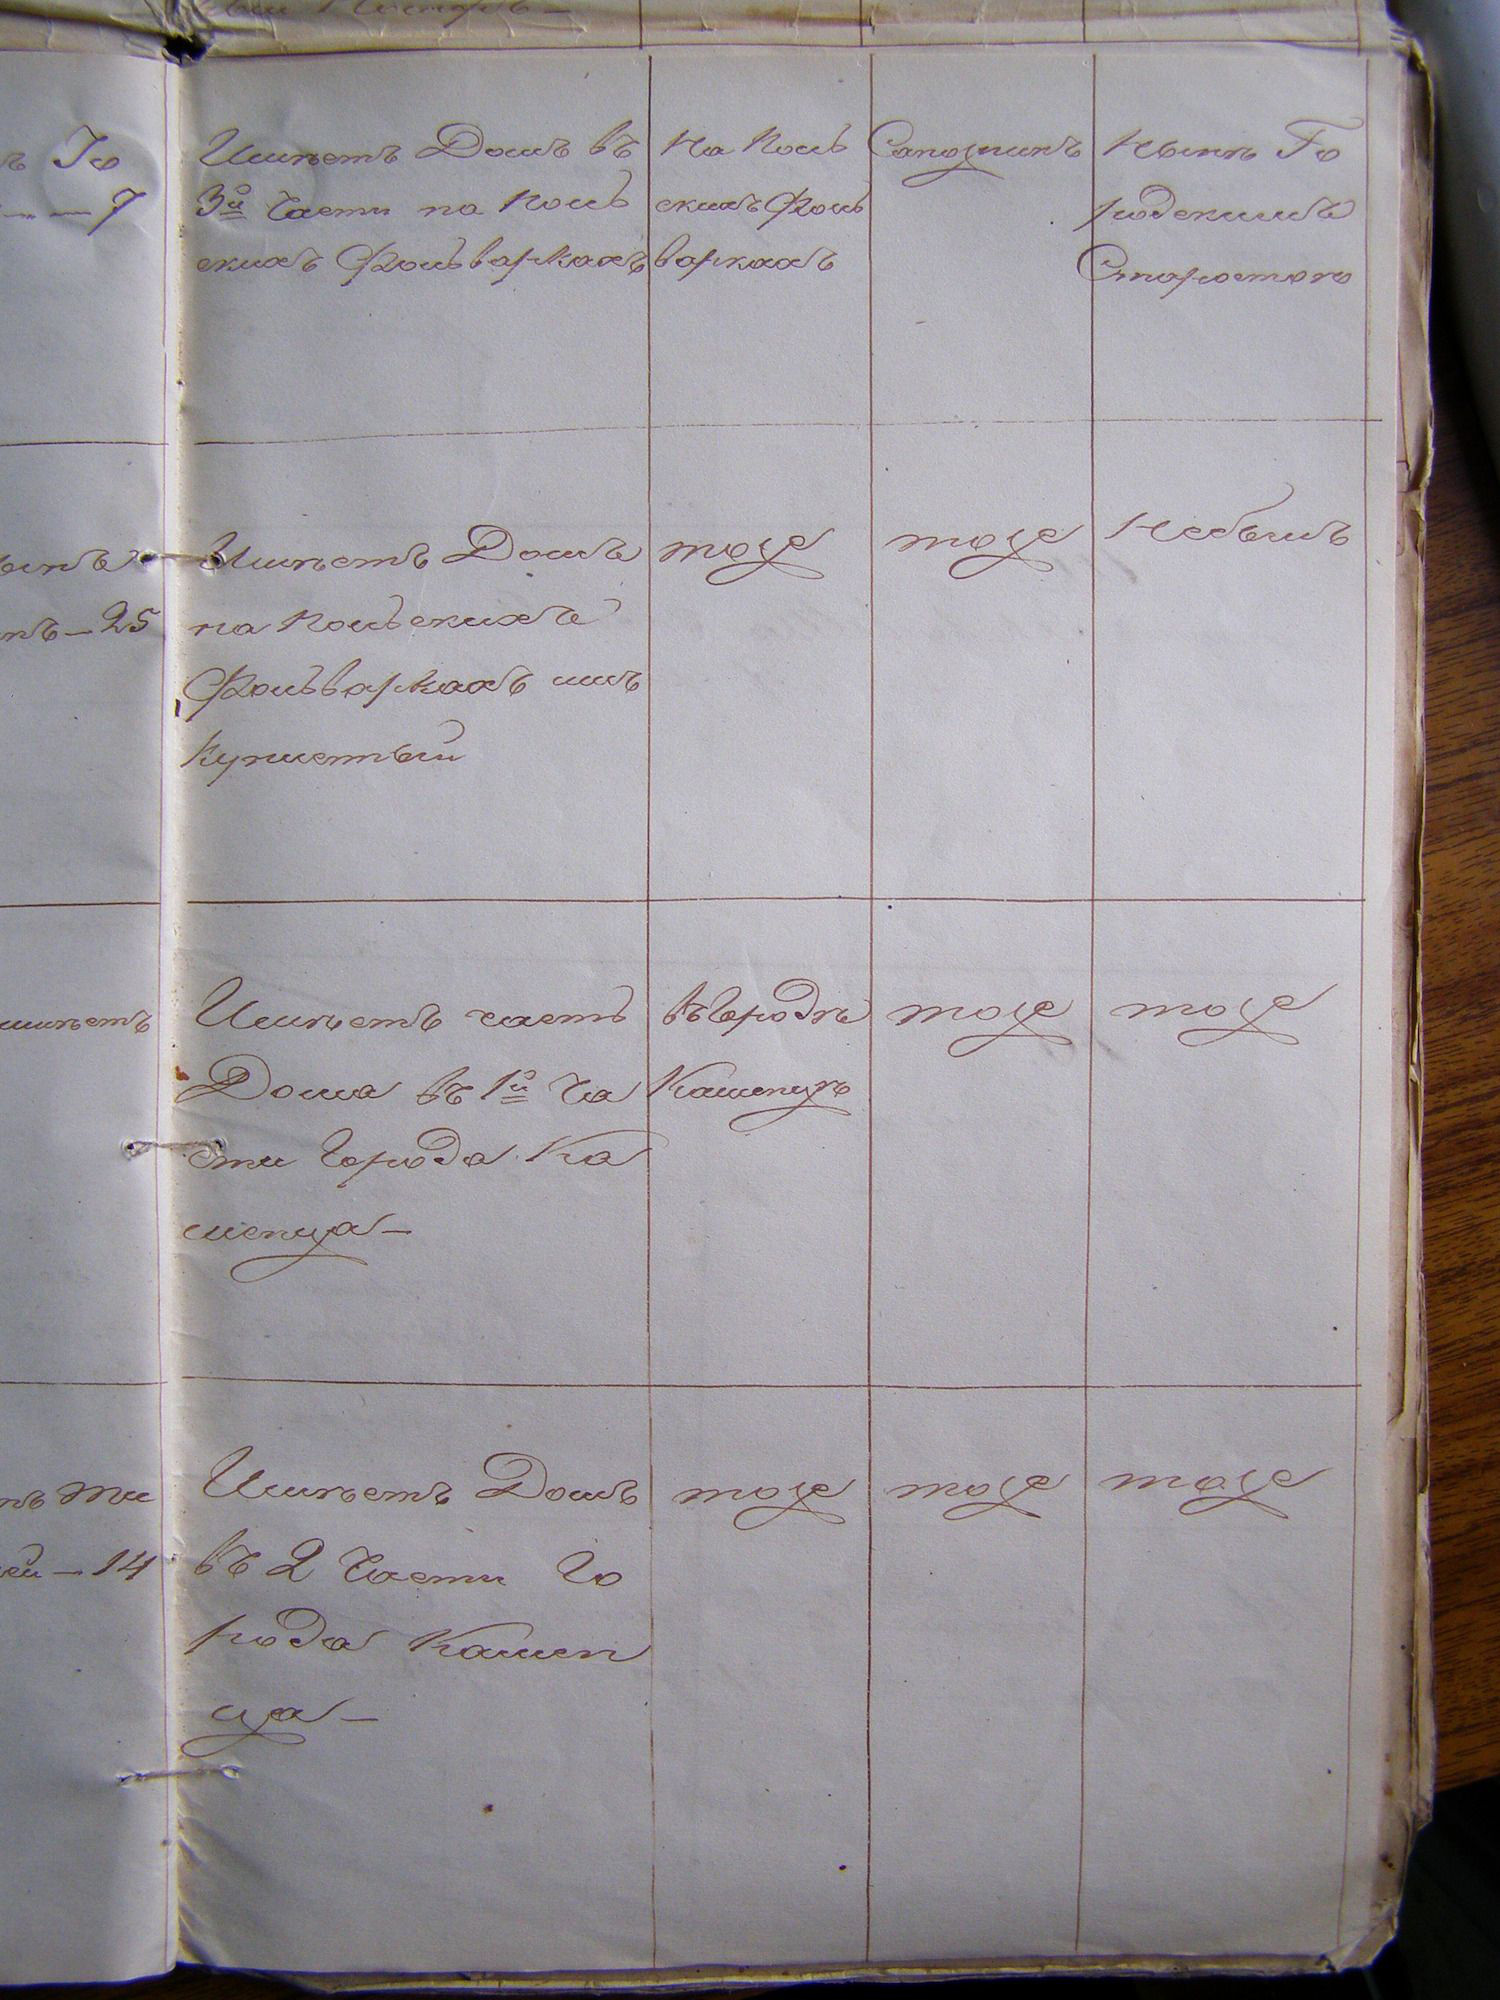 Имѣетъ Домъ въ
3й Части на Поль
скихъ Фольваркахъ
На Поль
скихъ Фоль
варкахъ
Сапожникъ
Нынѣ Го
родскимъ
Старостою
7
Имѣетъ Домъ
на Польскихъ
Фольваркахъ имъ
Купленный
тоже
тоже
Небылъ
25
имѣетъ
Имѣетъ часть
Дома въ 1й Ча
сти Города Ка
менца
въ Городѣ
Каменцѣ
тоже
тоже
14
Имѣетъ Домъ
въ 2 Части Го
рода Камен
ца
тоже
тоже
тоже